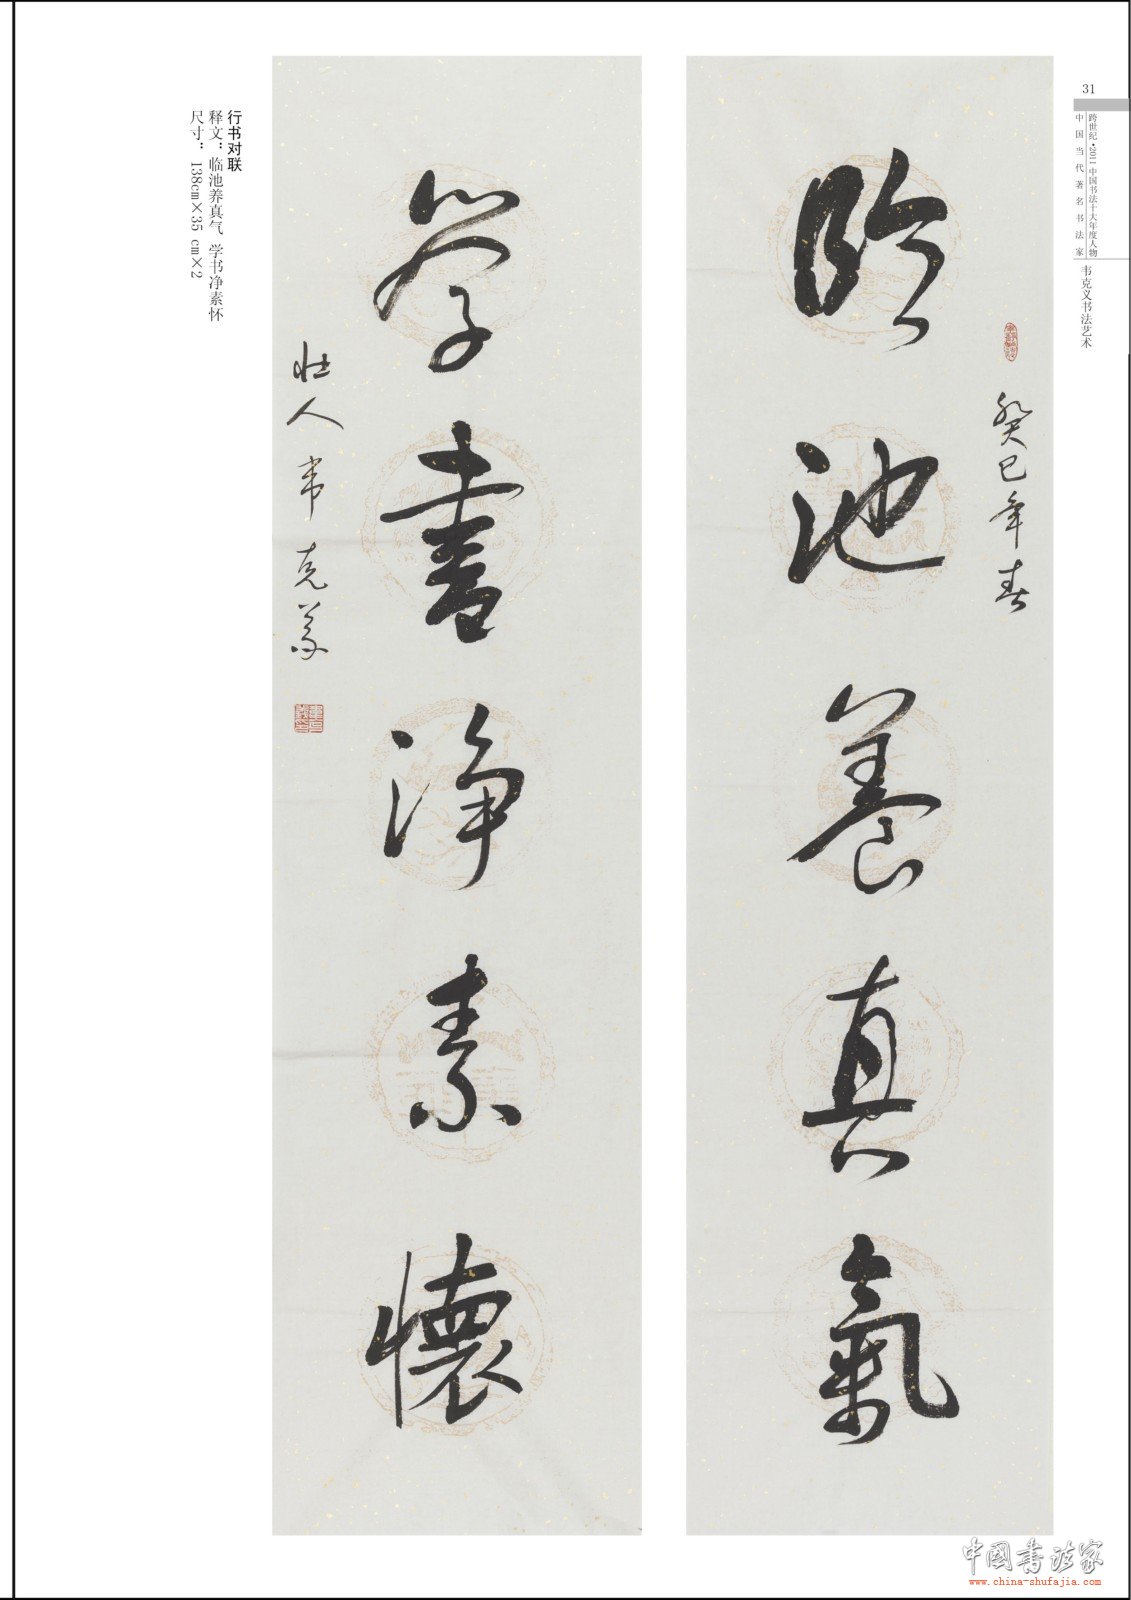 31
跨世纪·2011中国书法十大年度人物
中国当代著名书法家
韦克义书法艺术
癸巳年春
臨池養真氣
学書淨素懷
壮人韦克义
行书对联
释文：临池养真气 学书净素怀
尺寸：138cm×35 cm×2
中国书法家
www.china-shufajia.com